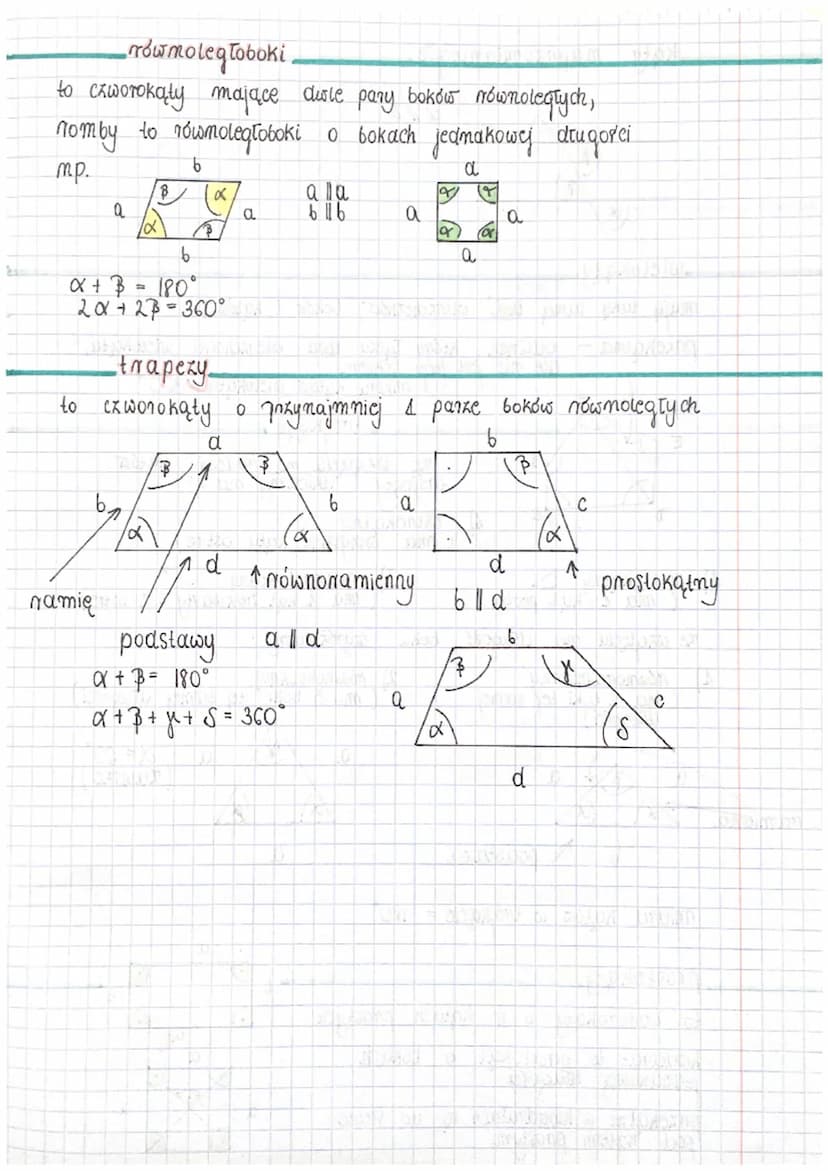 równoległoboki
to czworokąty mające dwie pary boków równoległych,
romby to równoległoboki o bokach jednakowej długości
np.
b
β α
a
a
α β
b
a || a
b || b
a
α α
a
a
α α
a
α + β = 180°
2α + 2β = 360°
trapezy
to czworokąty o przynajmniej 1 parze boków równoległych
a
β β
b
b
α α
d
b
. β
a
c
α
d
ramię
↑ równoramienny
↑ prostokątny
b || d
podstawy
a || d
α + β = 180°
α + β + γ + δ = 360°
b
β γ
a
c
α δ
d